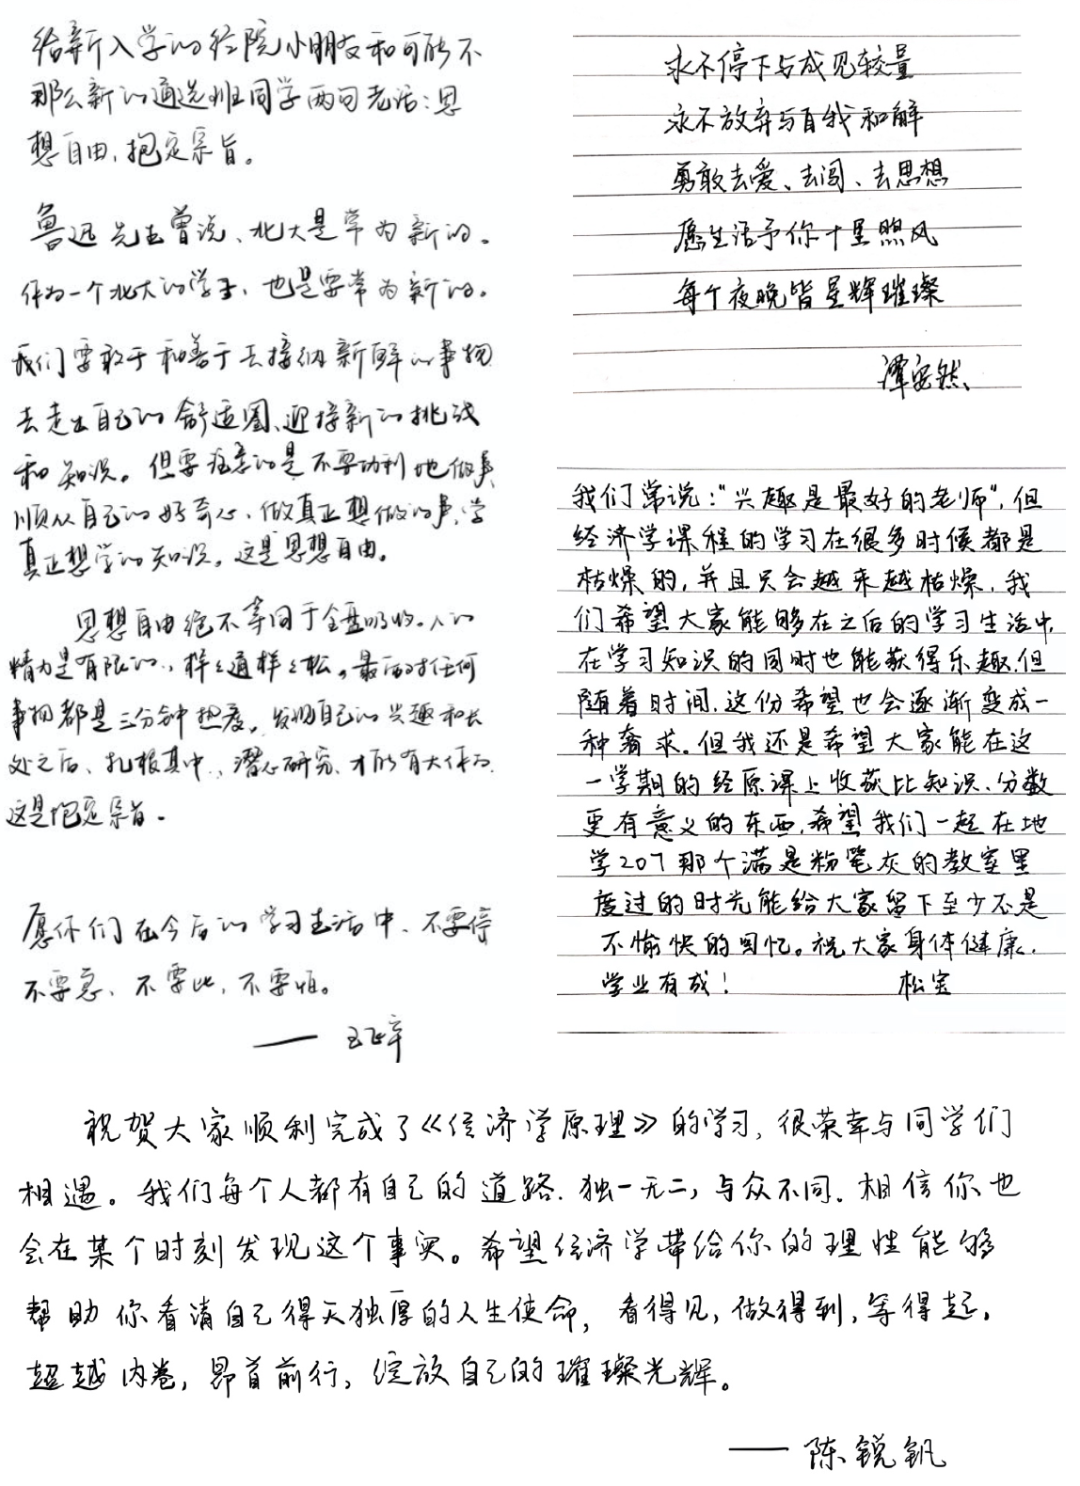 给新入学的经院小朋友和可能不
那么新的通选班同学两句老话：思
想自由，抱定宗旨。
鲁迅先生曾说、北大是常为新的。
作为一个北大的学子，也是要常为新的。
我们要敢于和善于去接纳新鲜的事物
去走出自己的舒适圈、迎接新的挑战
和知识。但要注意的是不要功利地做事
顺从自己的好奇心、做真正想做的事、学
真正想学的知识。这是思想自由。
思想自由绝不等同于全盘吸收。人的
精力是有限的，样样通样样松。最忌对任何
事物都是三分钟热度。发掘自己的兴趣和长
处之后、扎根其中、潜心研究、才能有大作为。
这是抱定宗旨。
愿你们在今后的学习生活中、不要停
不要急、不要比，不要怕。
永不停下与成见较量
永不放弃与自我和解
勇敢去爱、去闯、去思想
愿生活予你十里煦风
每个夜晚皆星辉璀璨
谭安然
我们常说：“兴趣是最好的老师”，但
经济学课程的学习在很多时候都是
枯燥的，并且只会越来越枯燥，我
们希望大家能够在之后的学习生活中，
在学习知识的同时也能获得乐趣，但
随着时间，这份希望也会逐渐变成一
种奢求。但我还是希望大家能在这
一学期的经原课上收获比知识、分数
更有意义的东西，希望我们一起在地
学207那个满是粉笔灰的教室里
度过的时光能给大家留下至少不是
不愉快的回忆。祝大家身体健康，
学业有成！ 松宝
祝贺大家顺利完成了《经济学原理》的学习，很荣幸与同学们
相遇。我们每个人都有自己的道路，独一无二，与众不同，相信你也
会在某个时刻发现这个事实。希望经济学带给你的理性能够
帮助你看清自己得天独厚的人生使命，看得见，做得到，等得起。
超越内卷，昂首前行，绽放自己的璀璨光辉。
——陈锐钒